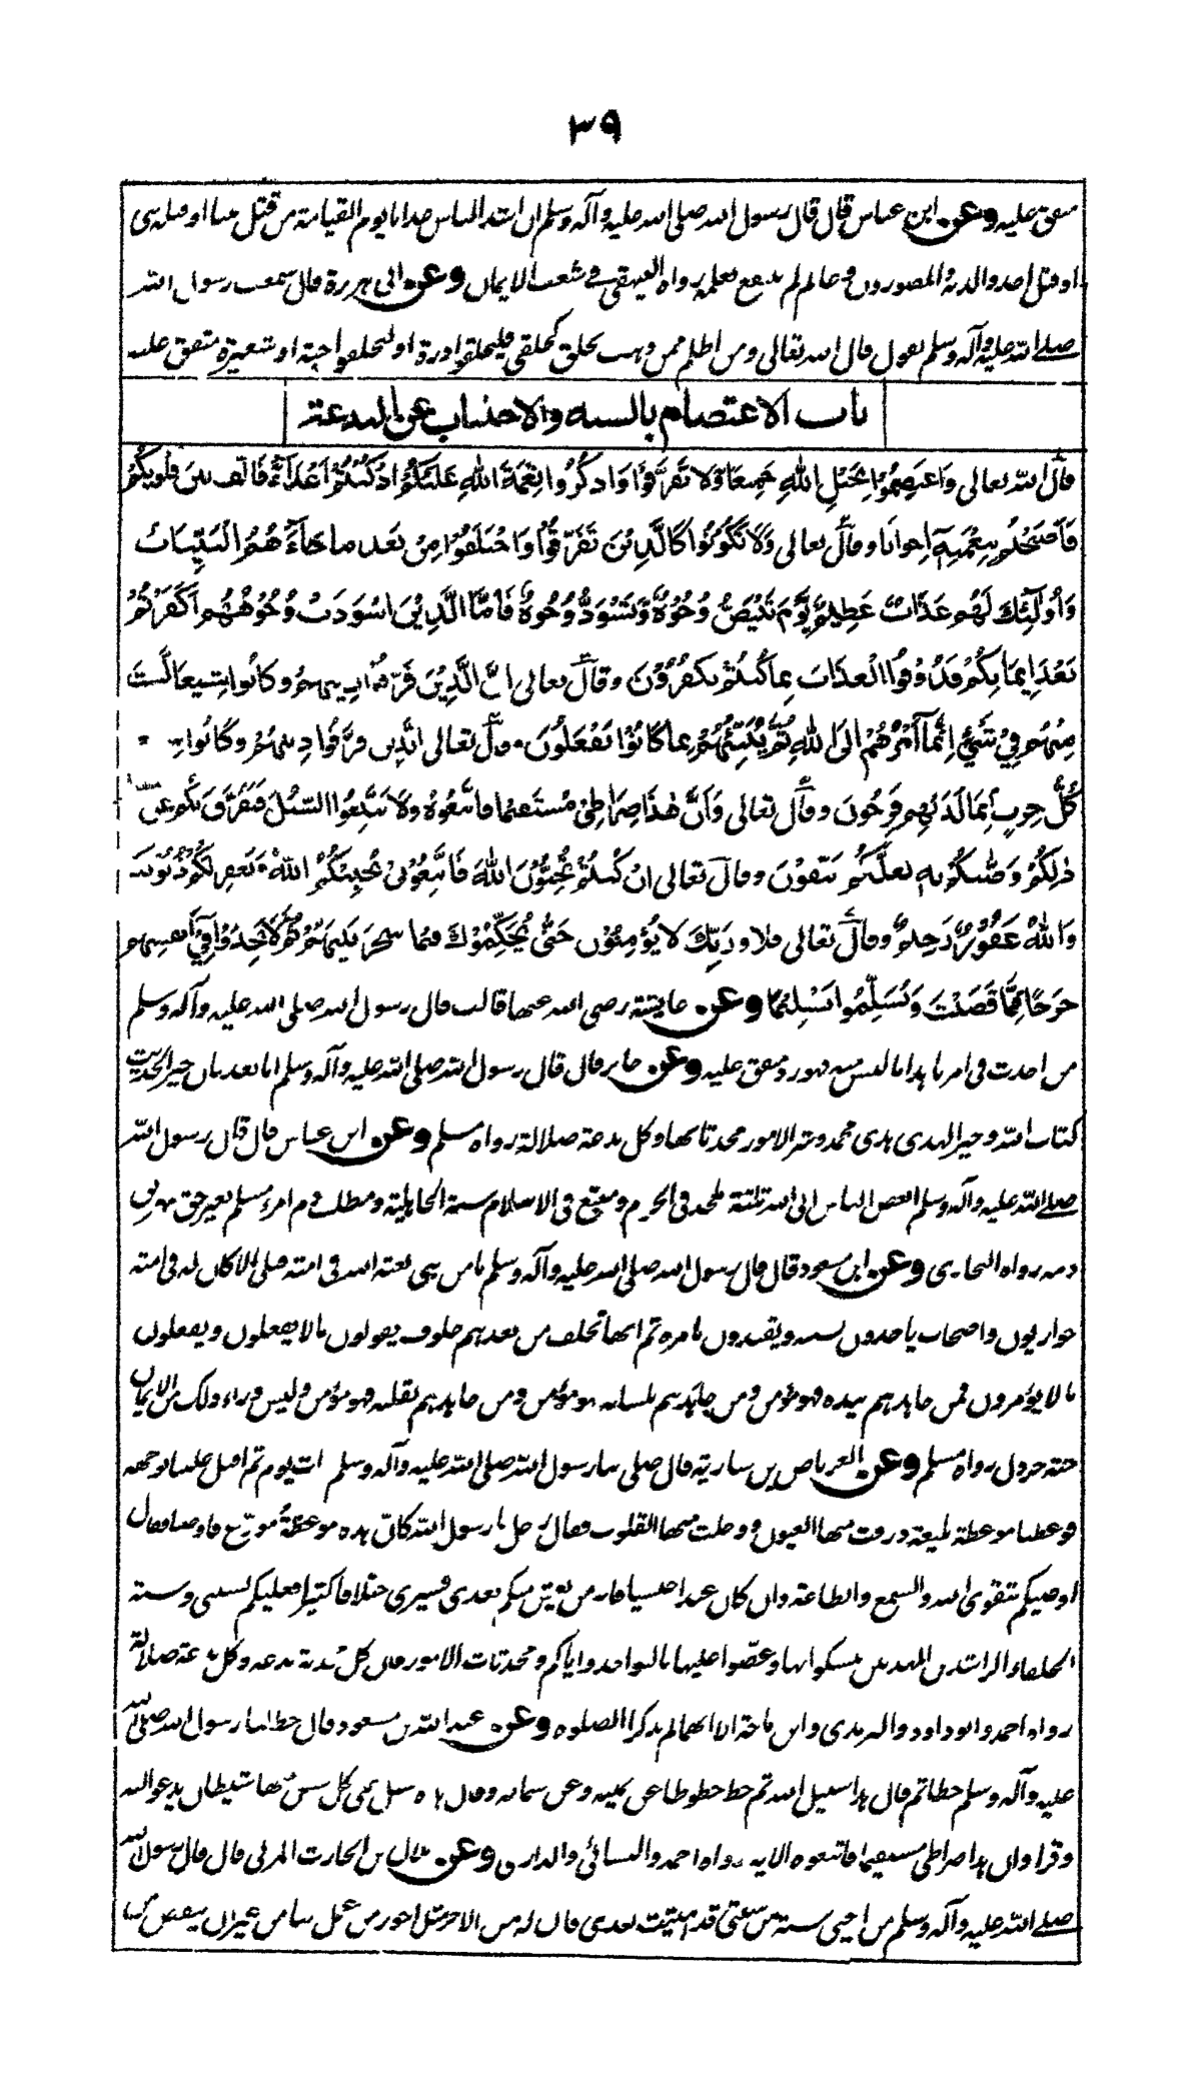 ٣٩
متفق عليه وعن ابن عباس قال قال رسول الله صلى الله عليه وآله وسلم ان اشد الناس عذابا يوم القيامة من قتل نبيا او قتله نبي
او قتل احد والديه والمصورون وعالم لم ينتفع بعلمه رواه البيهقي في شعب الايمان وعن ابي هريرة قال سمعت رسول الله
صلى الله عليه وآله وسلم يقول قال الله تعالى ومن اظلم ممن ذهب يخلق كخلقي فليخلقوا ذرة او ليخلقوا حبة او شعيرة متفق عليه
باب الاعتصام بالسنة والاجتناب عن البدعة
قال الله تعالى وَاعْتَصِمُوا بِحَبْلِ اللهِ جَمِيعًا وَّلَا تَفَرَّقُوْا وَاذْكُرُوا نِعْمَةَ اللهِ عَلَيْكُمْ اِذْ كُنْتُمْ اَعْدَآءً فَاَلَّفَ بَيْنَ قُلُوبِكُمْ
فَاَصْبَحْتُمْ بِنِعْمَتِهٖ اِخوانا وقال تعالى وَلَا تَكُوْنُوْا كَالَّذِيْنَ تَفَرَّقُوْا وَاخْتَلَفُوْا مِنْ بَعْدِ ما جَآءَهُمُ الْبَيِّنَاتُ
وَاُولٰٓئِكَ لَهُمْ عَذَابٌ عَظِيْمٌ يَّوْمَ تَبْيَضُّ وُجُوْهٌ وَّتَسْوَدُّ وُجُوهٌ فَاَمَّا الَّذِيْنَ اسْوَدَّتْ وُجُوْهُهُمْ اَكَفَرْتُمْ
بَعْدَ اِيمَانِكُمْ فَذُوْقُوا الْعَذَابَ بِمَا كُنْتُمْ تَكْفُرُوْنَ وقال تعالى اِنَّ الَّذِيْنَ فَرَّقُوْا دِينَهُمْ وَكَانُوا شِيَعًا لَّسْتَ
مِنْهُمْ فِيْ شَيْءٍ اِنَّمَآ اَمْرُهُمْ اِلَى اللهِ ثُمَّ يُنَبِّئُهُمْ بِمَا كَانُوْا يَفْعَلُوْنَ وقال تعالى الَّذِين فرَّقُوا دِينَهُمْ وَكَانُوا
كُلُّ حِزبٍ بِمَا لَدَيْهِمْ فَرِحُونَ وقال تعالى وَاَنَّ هٰذَا صِرَاطِيْ مُسْتَقِيمًا فَاتَّبِعُوْهُ وَلَا تَتَّبِعُوا السُّبُلَ فَتَفَرَّقَ بِكُمْ عَنْ
ذٰلِكُمْ وَصّٰىكُمْ بِهٖ لَعَلَّكُمْ تَتَّقُوْنَ وقال تعالى اِنْ كُنْتُمْ تُحِبُّوْنَ اللهَ فَاتَّبِعُوْنِيْ يُحْبِبْكُمُ اللهُ وَيَغْفِرْ لَكُمْ ذُنُوْبَكُمْ
وَاللهُ غَفُوْرٌ رَّحِيمٌ وقال تعالى فلا وَرَبِّكَ لَا يُؤْمِنُوْنَ حَتّٰى يُحَكِّمُوْكَ فِيْمَا شَجَرَ بَيْنَهُمْ ثُمَّ لَا يَجِدُوْا فِيْٓ اَنْفُسِهِمْ
حَرَجًا مِّمَّا قَضَيْتَ وَيُسَلِّمُوا تَسْلِيْمًا وعن عايشة رضى الله عنها قالت قال رسول الله صلى الله عليه وآله وسلم
من احدث في امرنا هذا ما ليس منه فهو رد متفق عليه وعن جابر قال قال رسول الله صلى الله عليه وآله وسلم اما بعد فان خير الحديث
كتاب الله وخير الهدى هدى محمد وشر الامور محدثاتها وكل بدعة ضلالة رواه مسلم وعن ابن عباس قال قال رسول الله
صلى الله عليه وآله وسلم ابغض الناس الى الله ثلثة ملحد في الحرم ومبتغ في الاسلام سنة الجاهلية ومطلب دم امرء مسلم بغير حق ليهريق
دمه رواه البخاري وعن ابن مسعود قال قال رسول الله صلى الله عليه وآله وسلم ما من نبي بعثه الله في امته قبلي الا كان له في امته
حواريون واصحاب ياخذون بسنته ويقتدون بامره ثم انها تخلف من بعدهم خلوف يقولون ما لا يفعلون ويفعلون
ما لا يؤمرون فمن جاهدهم بيده فهو مؤمن ومن جاهدهم بلسانه فهو مؤمن ومن جاهدهم بقلبه فهو مؤمن وليس وراء ذلك من الايمان
حبة خردل رواه مسلم وعن العرباض بن سارية قال صلى بنا رسول الله صلى الله عليه وآله وسلم ذات يوم ثم اقبل علينا بوجهه
فوعظنا موعظة بليغة ذرفت منها العيون ووجلت منها القلوب فقال رجل يا رسول الله كان هذه موعظة مودّع فاوصنا فقال
اوصيكم بتقوى الله والسمع والطاعة وان كان عبدا حبشيا فانه من يعش منكم بعدي فسيرى اختلافا كثيرا فعليكم بسنتي وسنة
الخلفاء الراشدين المهديين تمسكوا بها وعضّوا عليها بالنواجذ واياكم ومحدثات الامور فان كل محدثة بدعة وكل بدعة ضلالة
رواه احمد وابو داود والترمذي وابن ماجة الا انهما لم يذكرا الصلوة وعن عبد الله بن مسعود قال خط لنا رسول الله صلى الله
عليه وآله وسلم خطا ثم قال هذا سبيل الله ثم خط خطوطا عن يمينه وعن شماله وقال هذه سبل على كل سبيل منها شيطان يدعو اليه
وقرا وان هذا صراطي مستقيما فاتبعوه الاية رواه احمد والنسائي والدارمي وعن بلال بن الحارث المزني قال قال رسول الله
صلى الله عليه وآله وسلم من احيى سنة من سنتي قد اميتت بعدي فان له من الاجر مثل اجور من عمل بها من غير ان ينقص من